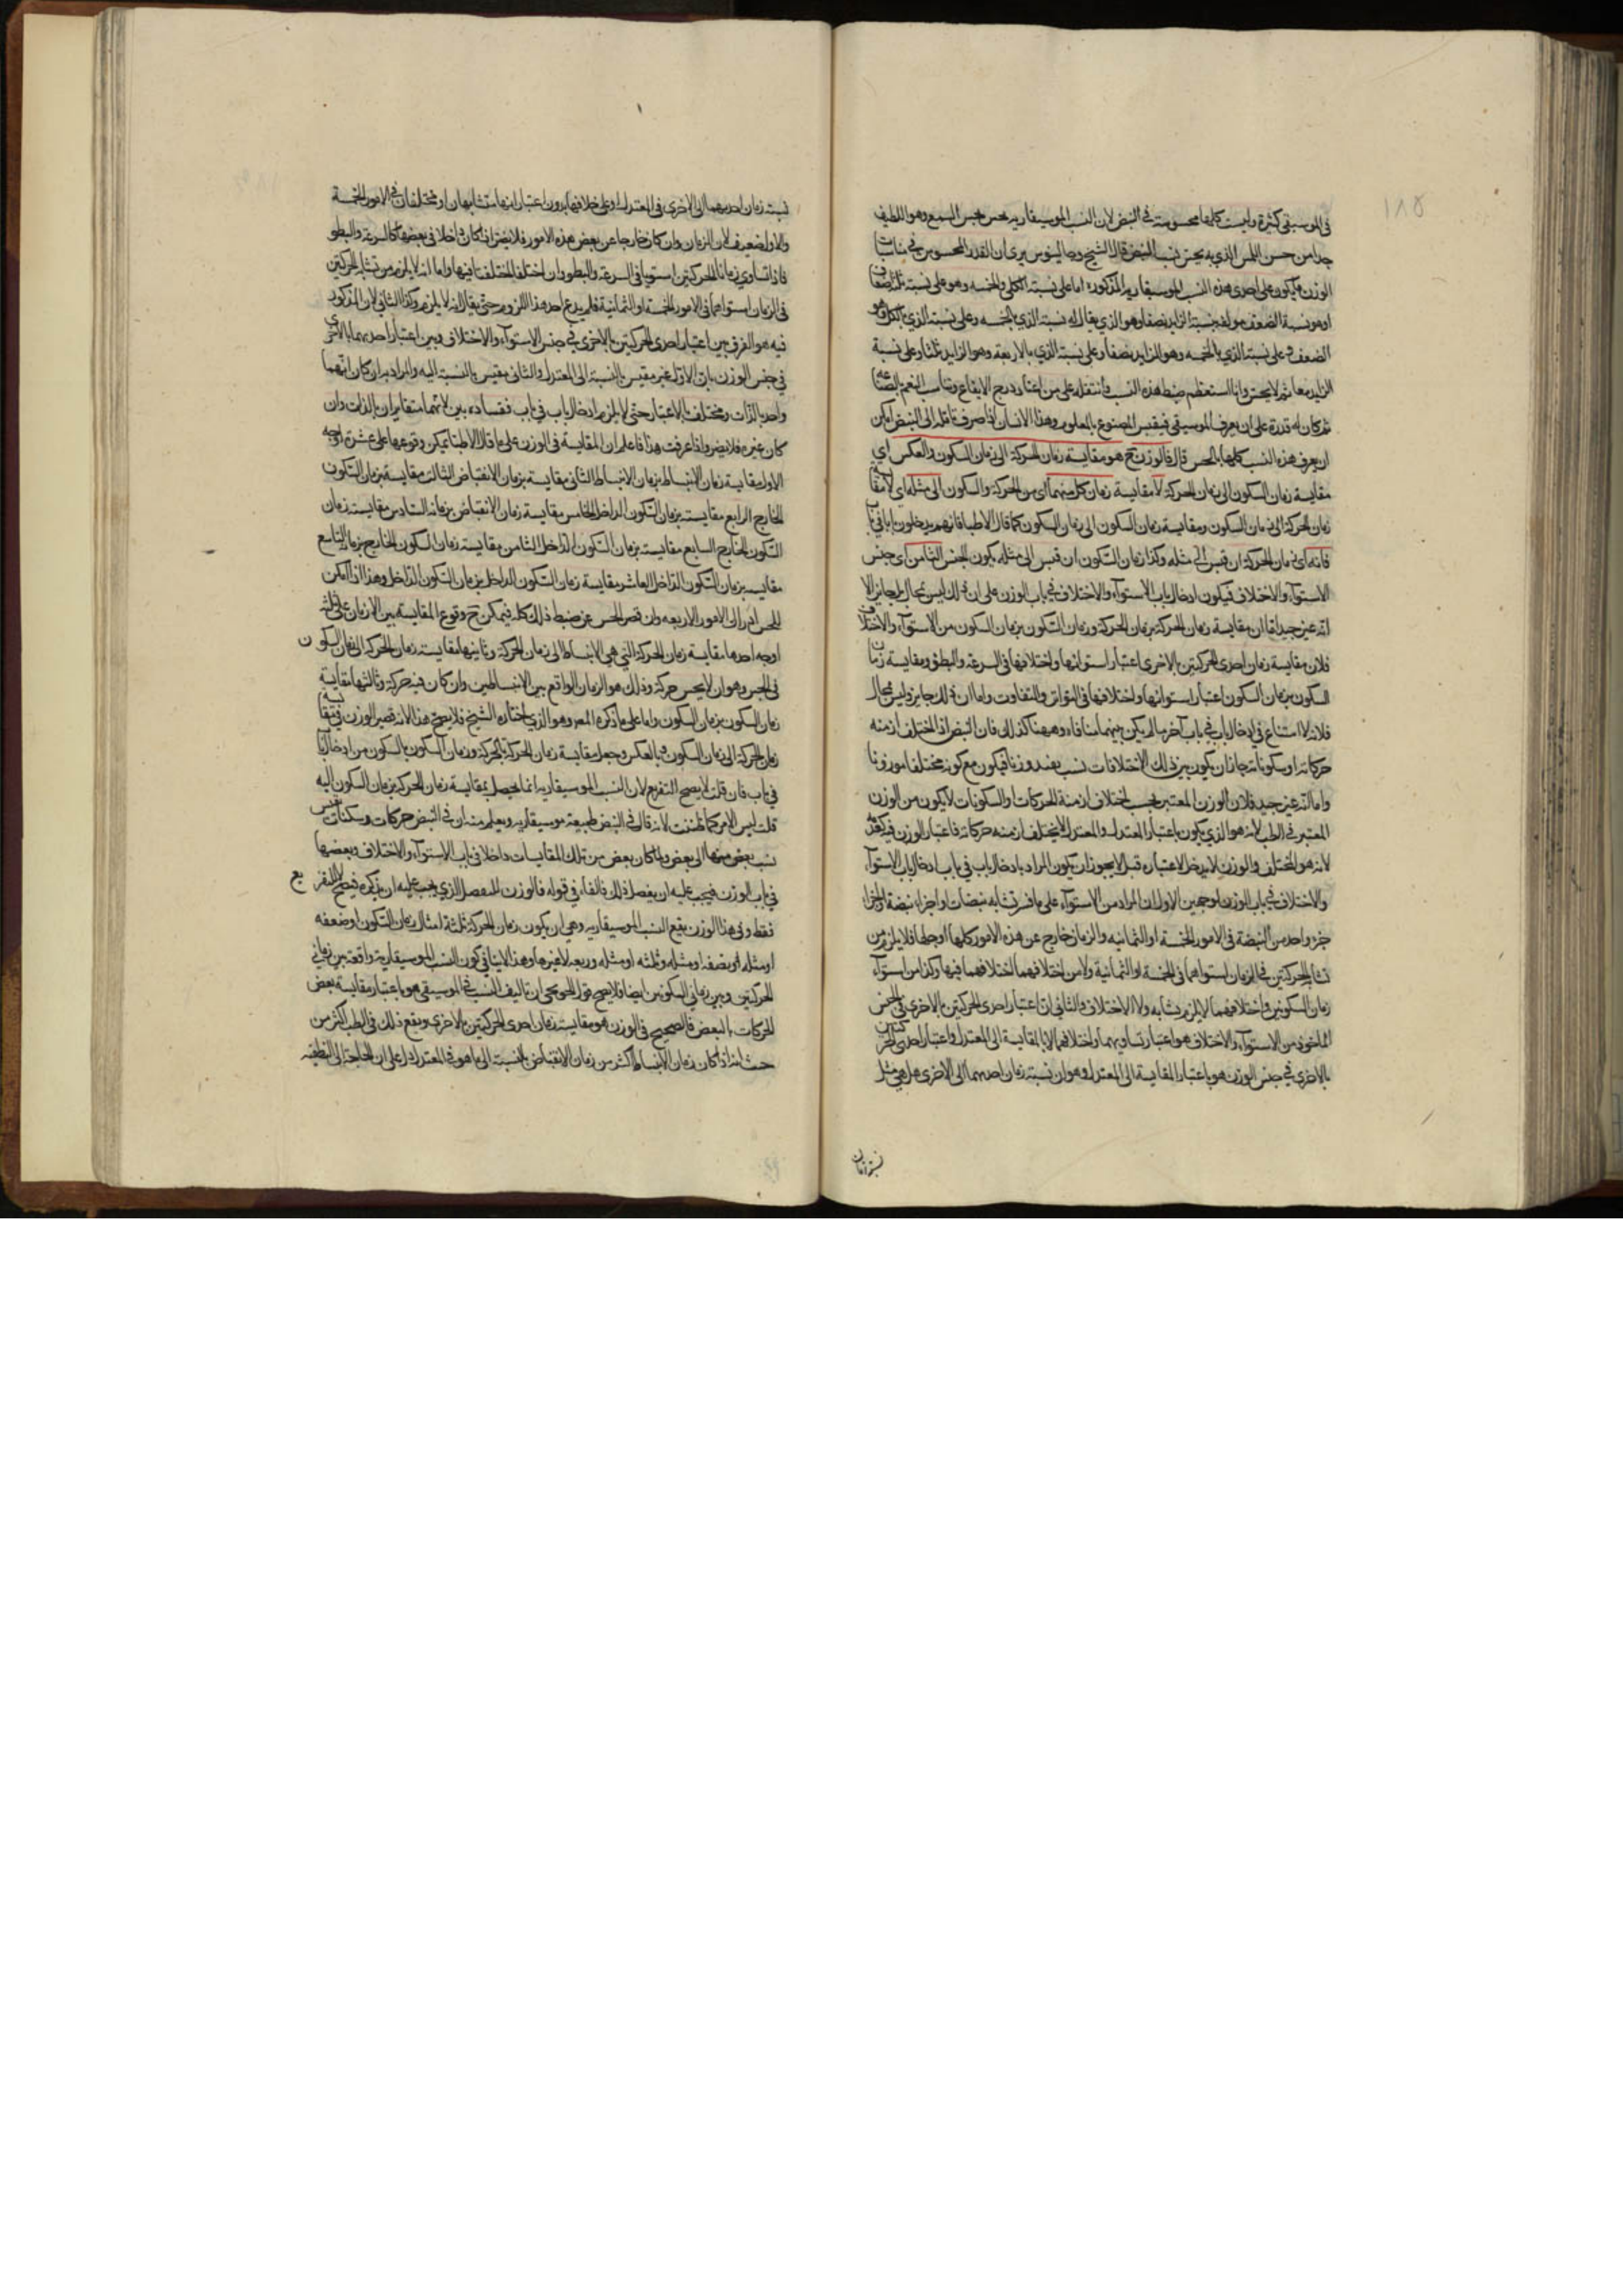 ١٨٥
في الموسيقى كثيرة وليست كلها محسوسة في النبض لان النسب الموسيقارية يحس بحس السمع وهو الطف
جدا من حس اللمس الذي به يحس نسب النبض قال الشيخ وجالينوس يرى ان القدر المحسوس في مناسبات
الوزن ما يكون على احدى هذه النسب الموسيقارية المذكورة اما على نسبة الكل والخمسة وهو على نسبة ثلثة اضعاف
اذ هو نسبة الضعف مولفة بنسبة الزايد نصفا وهو الذي يقال له نسبة الذي بالخمسة وعلى نسبة الذي بالكل وهو
الضعف وعلى نسبة الذي بالخمسة وهو الزايد نصفا وعلى نسبة الذي بالاربعة وهو الزايد ثلثا وعلى نسبة
الزايد ربعا ثم لا يحس وانا استعظم ضبط هذه النسب بالجس واسهله على من اعتاد درج الايقاع وتناسب النغم بالصناعة
ثم كان له قدرة على ان يعرف الموسيقى فيقيس المصنوع بالمعلوم وهذا الانسان اذا صرف تامله الى النبض امكن
ان يعرف هذه النسب كلها بالجس قال فالوزن ح هو مقايسة زمان الحركة الى زمان السكون والعكس اي
مقايسة زمان السكون الى زمان الحركة لا مقايسة زمان كل منهما اي من الحركة والسكون الى مثله اي لا مقايسة
زمان الحركة الى زمان السكون ومقايسة زمان السكون الى زمان السكون كما قال الاطبا فانهم يدخلون بابا في باب
فانه اي زمان الحركة ان قيس الى مثله وكذا زمان السكون ان قيس الى مثله يكون الجنس الثامن اي جنس
الاستوآء والاختلاف فيكون ادخال باب الاستوآء والاختلاف في باب الوزن على ان ذلك ليس بمحال بل جايز الا
انه غير جيد اما ان مقايسة زمان الحركة بزمان الحركة وزمان السكون بزمان السكون من الاستوآء والاختلاف
فلان مقايسة زمان احدى الحركتين بالاخرى اعتبار استوائها واختلافها في السرعة والبطؤ ومقايسة زمان
السكون بزمان السكون اعتبار استوائها واختلافها في التواتر والتفاوت واما ان ذلك جايز وليس بمحال
فلانه لا امتناع في ادخال باب في باب آخر ما لم يكن بينهما منافاة وههنا كذلك فان النبض اذا اختلف ازمنة
حركاته او سكوناته جاز ان يكون بين ذلك الاختلافات نسب يفيد وزنا فيكون مع كونه مختلفا موزونا
واما انه غير جيد فلان الوزن المعتبر بحسب اختلاف ازمنة الحركات او السكونات لا يكون من الوزن
المعتبر في الطب لانه هو الذي يكون باعتبار المعتدل والمعتدل لا يختلف ازمنة حركاته فاعتبار الوزن فيه
لانه هو المختلف والوزن لا يدخل لاعتباره قبل لا يجوز ان يكون المراد بادخال باب في باب ادخال باب الاستوآء
والاختلاف في باب الوزن لوجهين الاول ان المراد من الاستوآء على ما فسر تشابه نبضات او اجزاء نبضة او اجزا
جزء واحد من النبضة في الامور الخمسة او الثمانية والزمان خارج عن هذه الامور كلها او جلها فلا يلزم من
تشابه الحركتين في الزمان استواهما في الخمسة او الثمانية ولا من اختلافهما اختلافهما فيها وكذا من استوآء
زمان السكونين واختلافهما لا يلزم تشابه ولا اختلاف والثاني ان اعتبار احدى الحركتين بالاخرى في الجنس
الماخوذ من الاستوآء والاختلاف هو اعتبار تساويهما واختلافهما لا بالمقايسة الى المعتدل واعتبار احدى الحركتين
بالاخرى في جنس الوزن هو باعتبار المقايسة الى المعتدل وهو ان نسبة زمان احديهما الى الاخرى هل هي مثل
نسبة زمان
نسبة زمان احديهما الى الاخرى في المعتدل او على خلافها بدون اعتبار انهما متشابهان او مختلفان في الامور الخمسة
والاول ضعيف لان الزمان وان كان خارجا عن بعض هذه الامور فلا يضر اذ كان داخلا في بعضها كالسرعة والبطو
فاذا تساوي زمانا الحركتين استويا في السرعة والبطو وان اختلفا اختلفتا فيها واما انه لا يلزم من تشابه الحركتين
في الزمان استواهما في الامور الخمسة او الثمانية فلم يدع احد هذا اللزوم حتى يقال انه لا يلزم وكذا الثاني لان المذكور
فيه هو الفرق بين اعتبار احدى الحركتين بالاخرى في جنس الاستوآء والاختلاف وبين اعتبار احديهما بالاخرى
في جنس الوزن بان الاول غير مقيس بالنسبة الى المعتدل والثاني مقيس بالنسبة اليه والمراد به ان كان انهما
واحد بالذات ومختلف بالاعتبار حتى لا يلزم ادخال باب في باب ففساده بين لانهما متغايران بالذات وان
كان غيره فلا يضر واذا عرفت هذا فاعلم ان المقايسة في الوزن على ما قال الاطبا يمكن وقوعها على عشرة اوجه
الاول مقايسة زمان الانبساط بزمان الانبساط الثاني مقايسة بزمان الانقباض الثالث مقايسة بزمان السكون
الخارج الرابع مقايسته بزمان السكون الداخل الخامس مقايسة زمان الانقباض بزمانه السادس مقايسته بزمان
السكون الخارج السابع مقايسته بزمان السكون الداخل الثامن مقايسة زمان السكون الخارج بزمانه التاسع
مقايسته بزمان السكون الداخل العاشر مقايسة زمان السكون الداخل بزمان السكون الداخل وهذا اذا امكن
للجس ادراك الامور الاربعة وان قصر الجس عن ضبط ذلك كله فيمكن ح وقوع المقايسة بين الازمان على ثلثة
اوجه احدها مقايسة زمان الحركة التي هي الانبساط الى زمان الحركة وثانيها مقايسة زمان الحركة الى زمان السكون
في الجس وهو ان لا يحس حركة وذلك هو الزمان الواقع بين الانبساطين وان كان فيه حركة وثالثها مقايسة
زمان السكون بزمان السكون واما على ما ذكره المص وهو الذي اختاره الشيخ فلا يصح هذا لانه قصر الوزن في مقايسة
زمان الحركة الى زمان السكون وبالعكس وجعل مقايسة زمان الحركة بالحركة وزمان السكون بالسكون من ادخال باب
في باب فان قلت لا يصح التفريع لان النسب الموسيقارية انما يحصل بمقايسة زمان الحركة بزمان السكون اليه
قلت ليس الامر كما ظننت لانه قال في النبض طبيعة موسيقارية ويعلم منه ان في النبض حركات وسكنات
نسب بعض منها الى بعض ولما كان بعض من تلك المقايسات داخلا في باب الاستوآء والاختلاف وبعضها
في باب الوزن فيجب عليه ان يفصل ذلك فالفاء في قوله فالوزن للتفصيل الذي يجب عليه ان يذكره فيصح التفريع
فقط وفي هذا الوزن يقع النسب الموسيقارية وهي ان يكون زمان الحركة ثلثة امثال زمان السكون او ضعفه
او مثله او نصفه او مثله وثلثه او مثله وربعه لا غيرها وهذا لا ينافي كون النسب الموسيقارية واقعة بين زماني
الحركتين وبين زماني السكونين ايضا ولا يصح قول الخونجي ان تاليف النسب في الموسيقى هو باعتبار مقايسة بعض
الحركات بالبعض فالصحيح في الوزن هو مقايسة زمان احدى الحركتين بالاخرى ويقع ذلك في الطب اكثر من
حيث انه اذا كان زمان الانبساط اكثر من زمان الانقباض بالنسبة الى ما هو في المعتدل دل على ان الحاجة الى التطفية